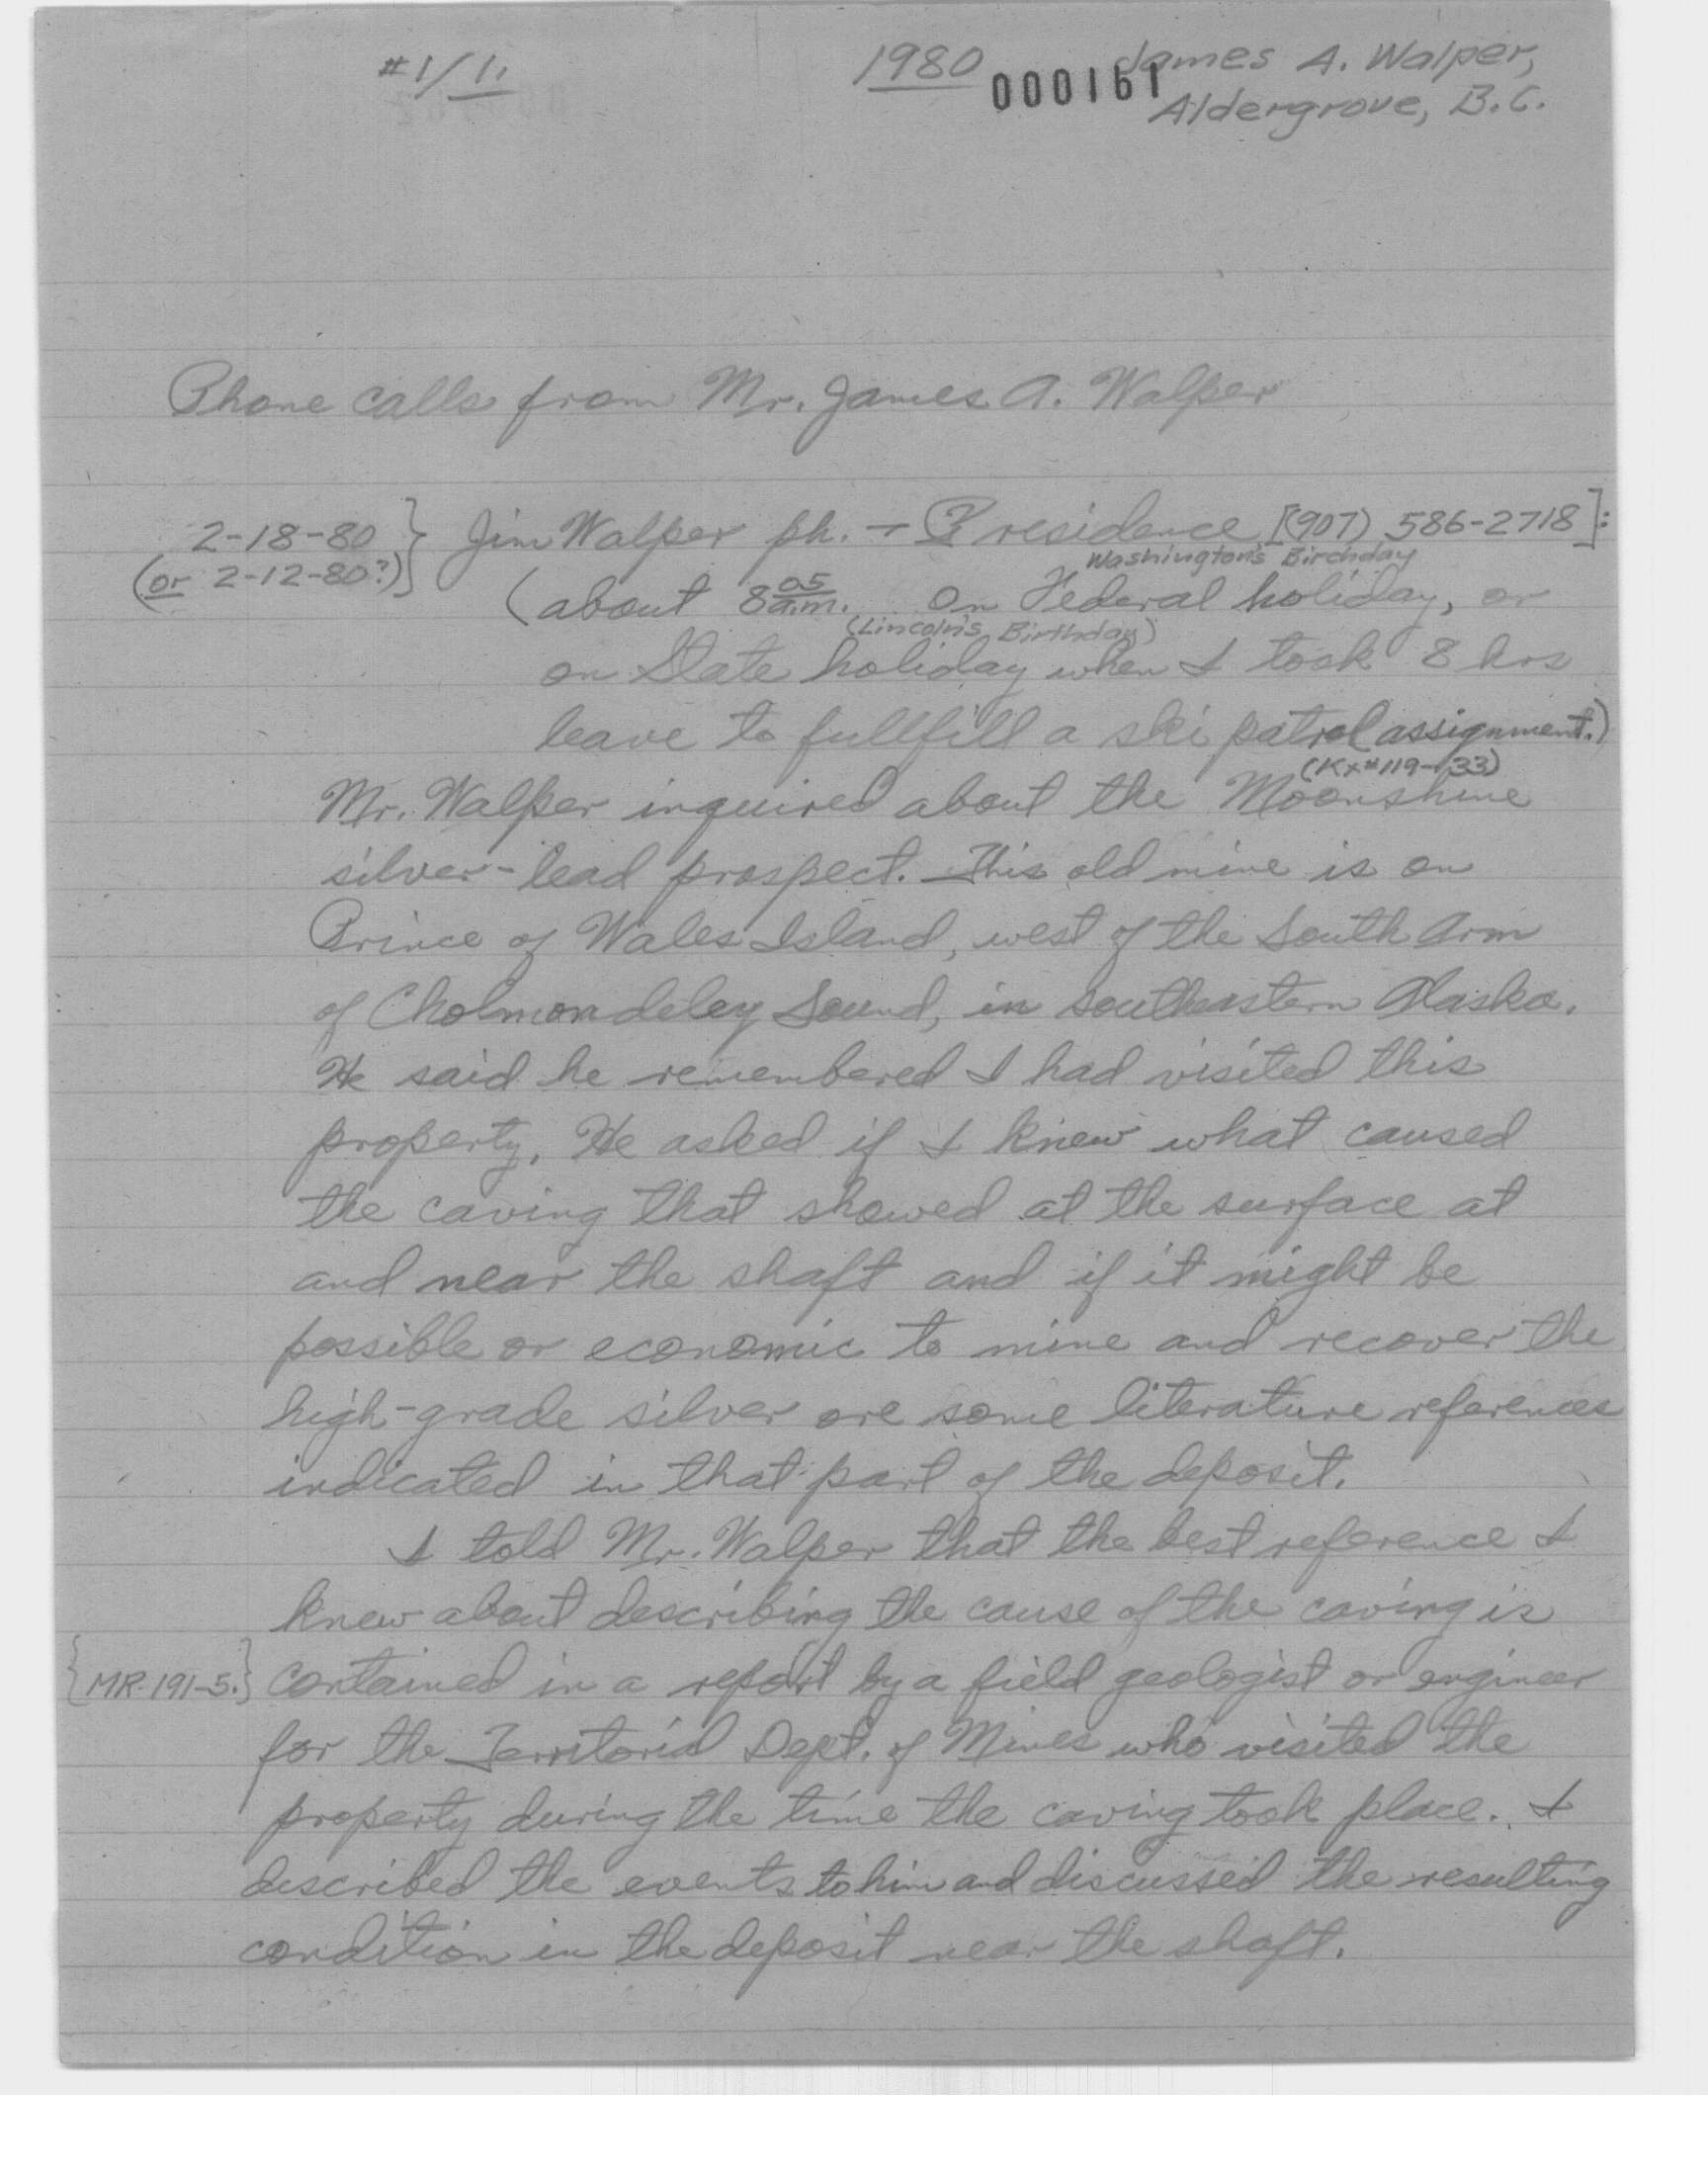 #1/1.
1980
000161
James A. Walper,
Aldergrove, B.C.
Phone calls from Mr. James A. Walper
2-18-80
(or 2-12-80?)
Jim Walper ph. → residence [(907) 586-2718]:
Washington's Birthday
(about 8 05 a.m. on Federal holiday, or
(Lincoln's Birthday)
on State holiday when I took 8 hrs
leave to fullfill a ski patrol assignment.)
(Kx#119-133)
Mr. Walper inquired about the Moonshine
silver-lead prospect. This old mine is on
Prince of Wales Island, west of the South Arm
of Cholmondeley Sound, in southeastern Alaska.
He said he remembered I had visited this
property. He asked if I knew what caused
the caving that showed at the surface at
and near the shaft and if it might be
possible or economic to mine and recover the
high-grade silver ore some literature references
indicated in that part of the deposit.
I told Mr. Walper that the best reference I
knew about describing the cause of the caving is
{MR-191-5.} contained in a report by a field geologist or engineer
for the Territorial Dept. of Mines who visited the
property during the time the caving took place. I
described the events to him and discussed the resulting
condition in the deposit near the shaft.